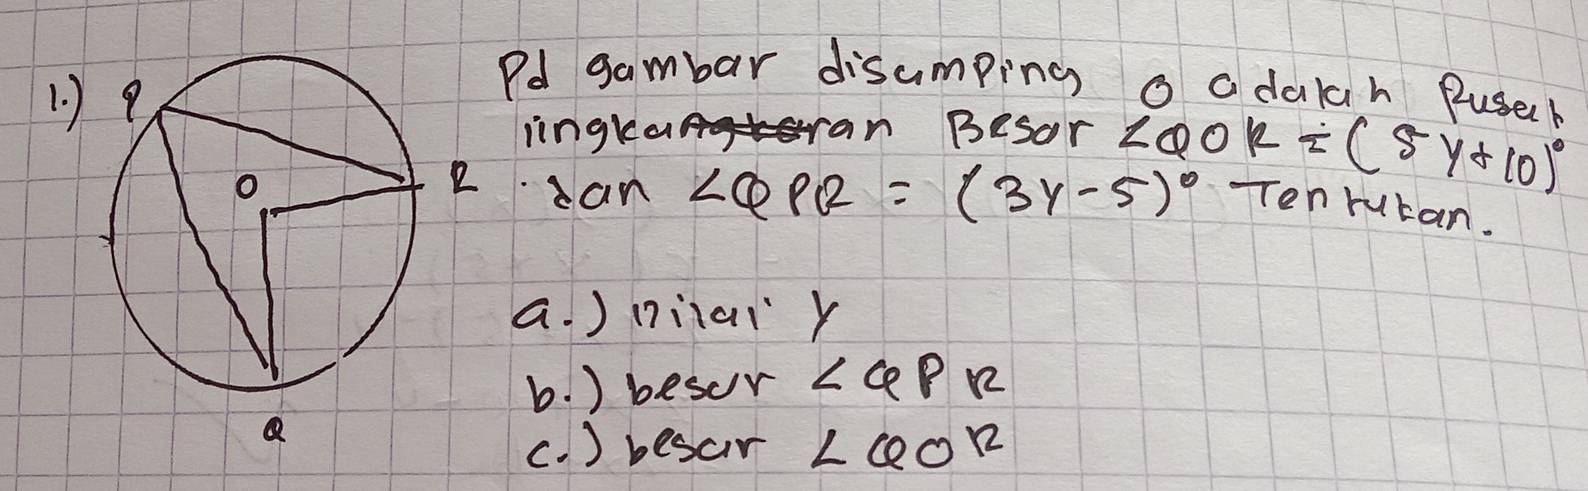 1.) P
O
R
Q
Pd gambar disamping O adalah Pusat
lingkaran Besar ∠QOR = (5y+10)°
dan ∠QPR = (3y-5)° Tentukan.
a.) nilai y
b.) besar ∠QPR
c.) besar ∠QOR